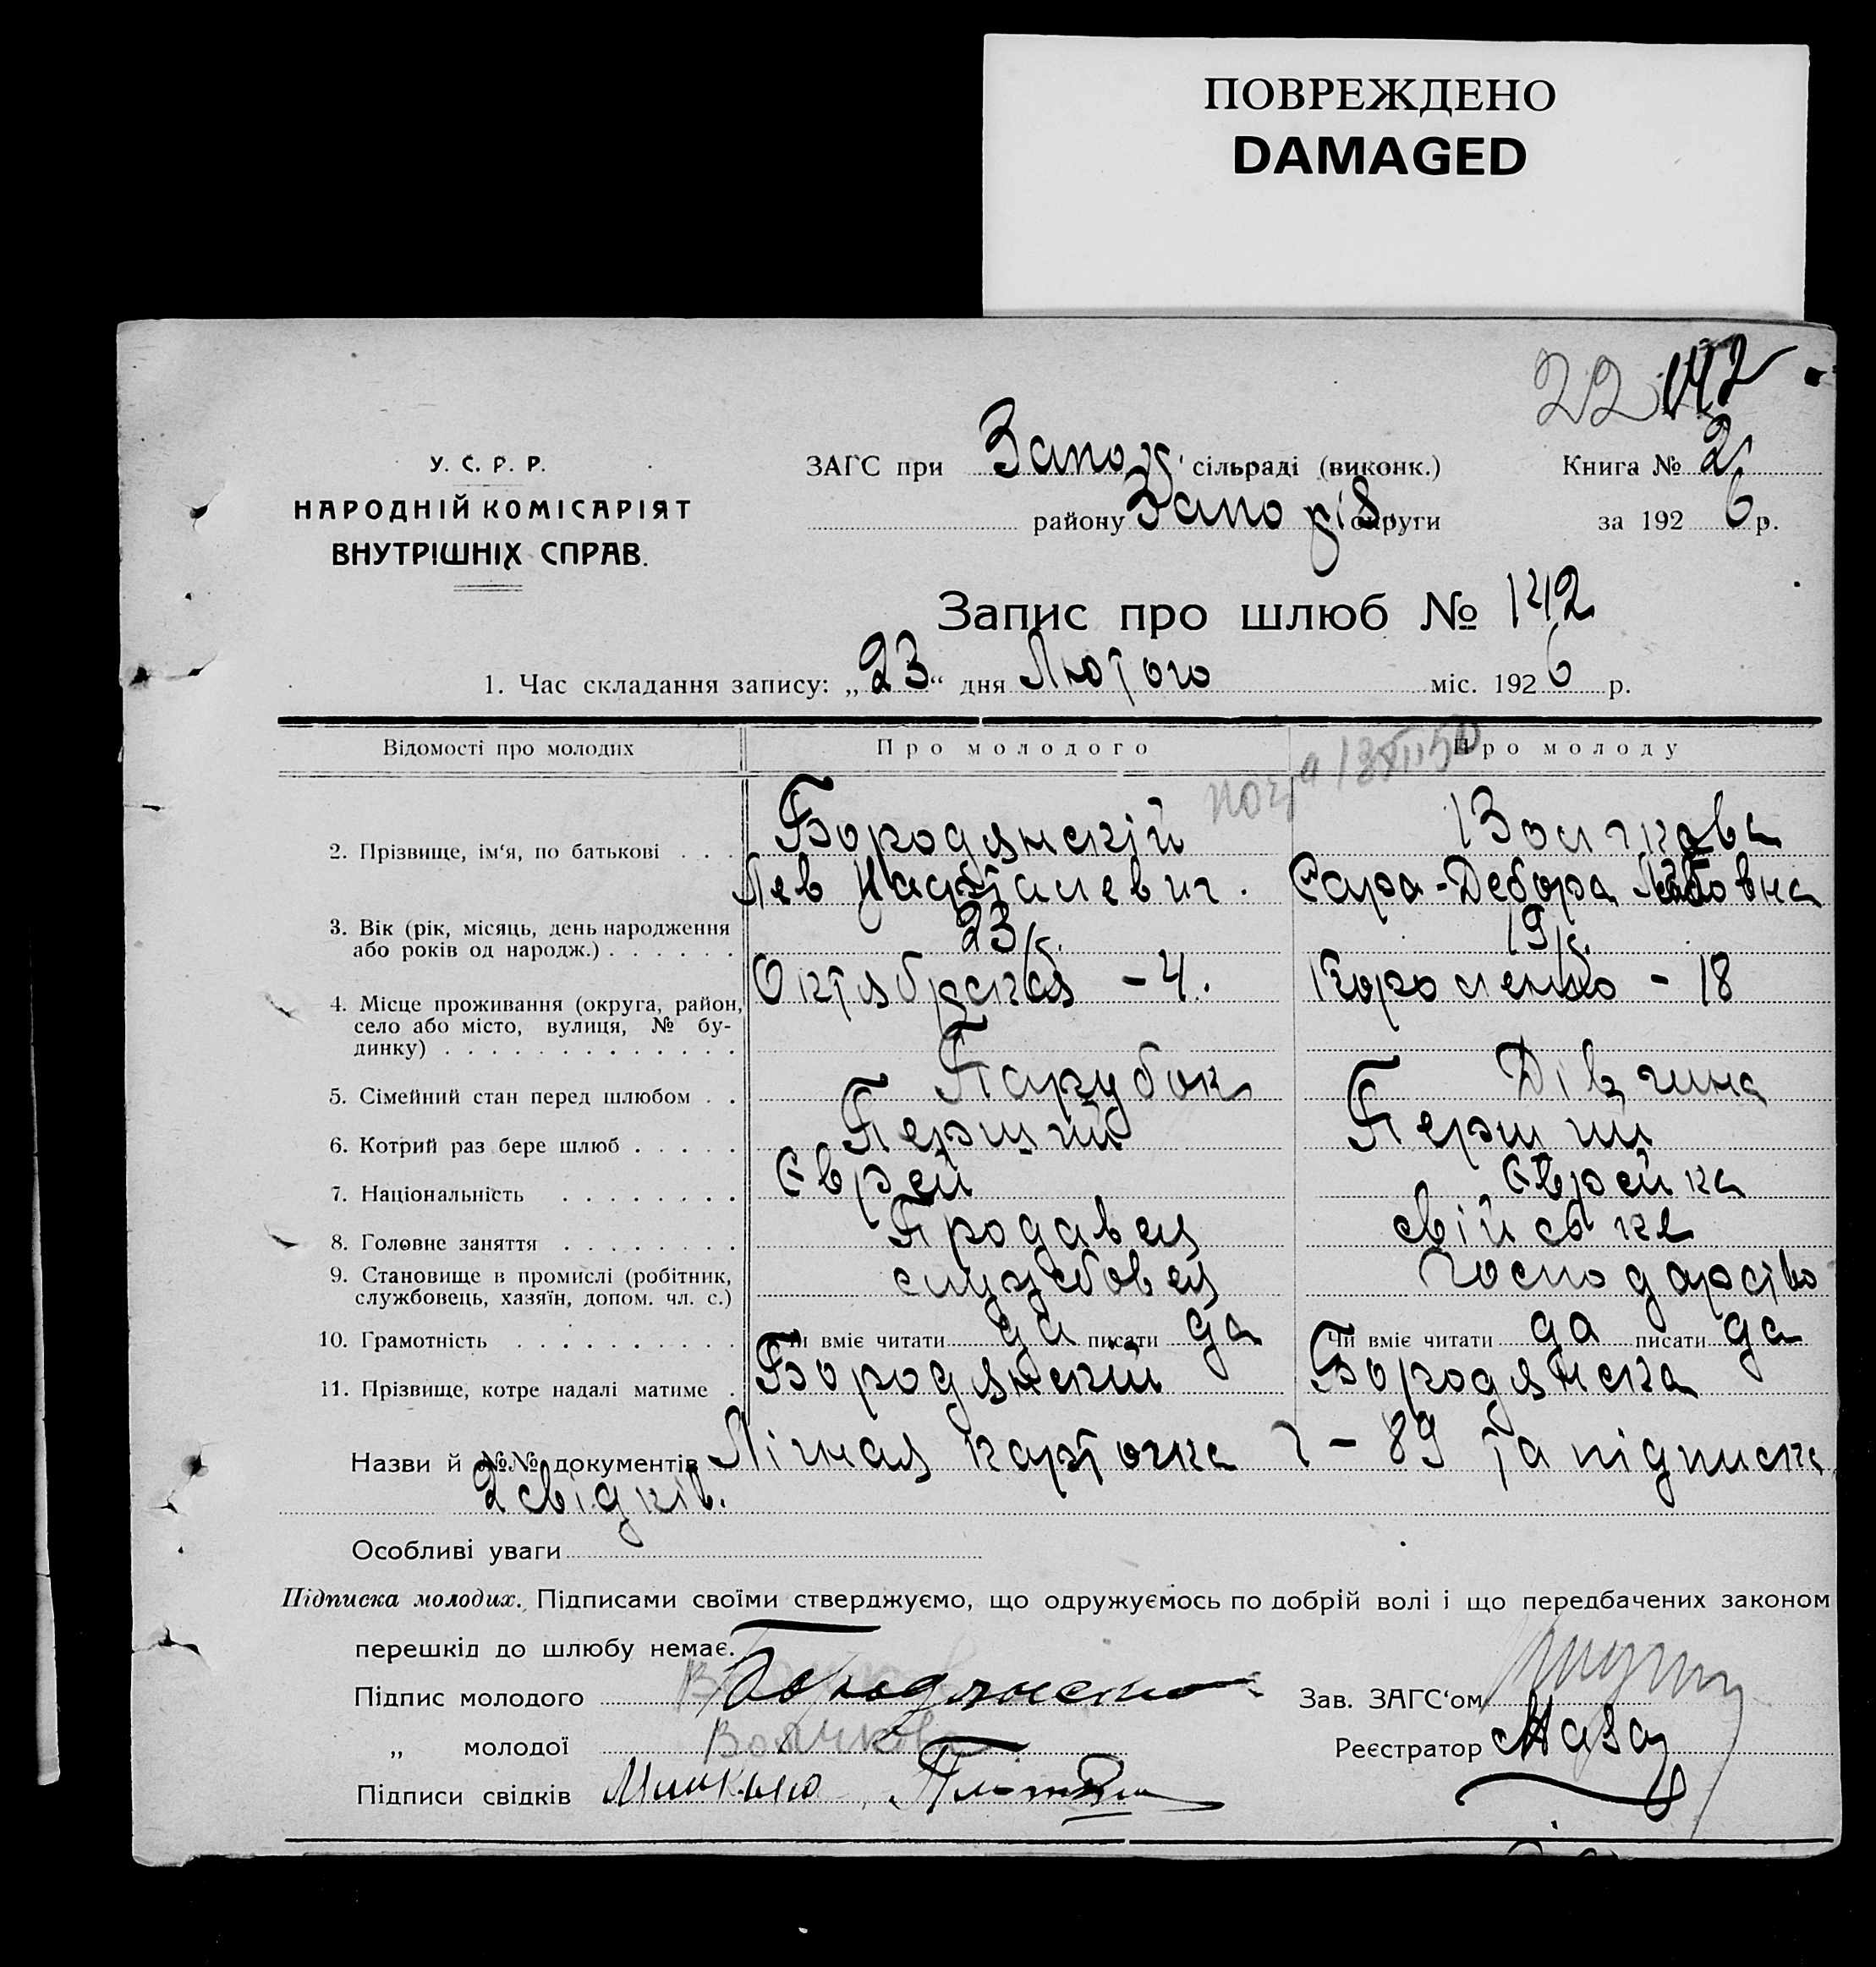 ПОВРЕЖДЕНО
DAMAGED
22 142
У. С. Р. Р.
НАРОДНІЙ КОМІСАРІЯТ
ВНУТРІШНІХ СПРАВ.
ЗАГС при Запор. сільраді (виконк.)
району Запоріз. округи
Книга № 2
за 1926 р.
Запис про шлюб № 142
1. Час складання запису: „23“ дня Лютого міс. 1926 р.
Відомості про молодих Про молодого Про молоду
2. Прізвище, ім‘я, по батькові . . . Бородянскій
Лев Нафталевич. Сара-Дебора
3. Вік (рік, місяць, день народження
або років од народж.) . . . . . . 23 р. 19 р.
4. Місце проживання (округа, район,
село або місто, вулиця, № бу-
динку) . . . . . . . . . . . . . Октябрская - 4. Короленко - 18
5. Сімейний стан перед шлюбом . . Парубок Дівчина
6. Котрий раз бере шлюб . . . . . Перший Перший
7. Національність . . . . . . . . Єврей Єврейка
8. Головне заняття . . . . . . . . Продавец свійське
9. Становище в промислі (робітник,
службовець, хазяїн, допом. чл. с.) службовец господарство
10. Грамотність . . . . . . . . . . Чи вміє читати да писати да Чи вміє читати да писати да
11. Прізвище, котре надалі матиме . Бородянский Бородянска
Назви й №№ документів Лічная карточка г - 89 та підписка
2 свідків.
Особливі уваги
Підписка молодих. Підписами своїми стверджуємо, що одружуємось по добрій волі і що передбачених законом
перешкід до шлюбу немає.
Підпис молодого
„ молодої Волчкова
Підписи свідків
Зав. ЗАГС‘ом
Реєстратор